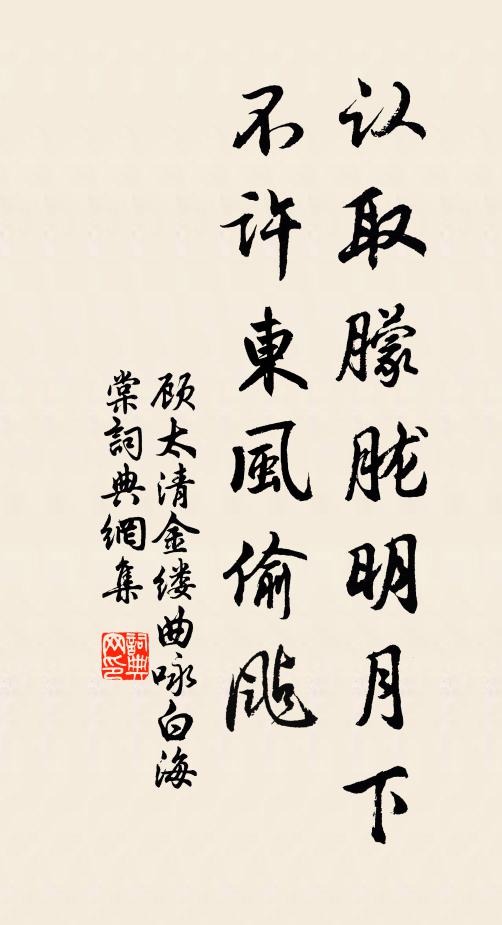 认取朦胧明月下
不许東風偷颭
顾太清金缕曲咏白海
棠詞典網集
詞典
网印